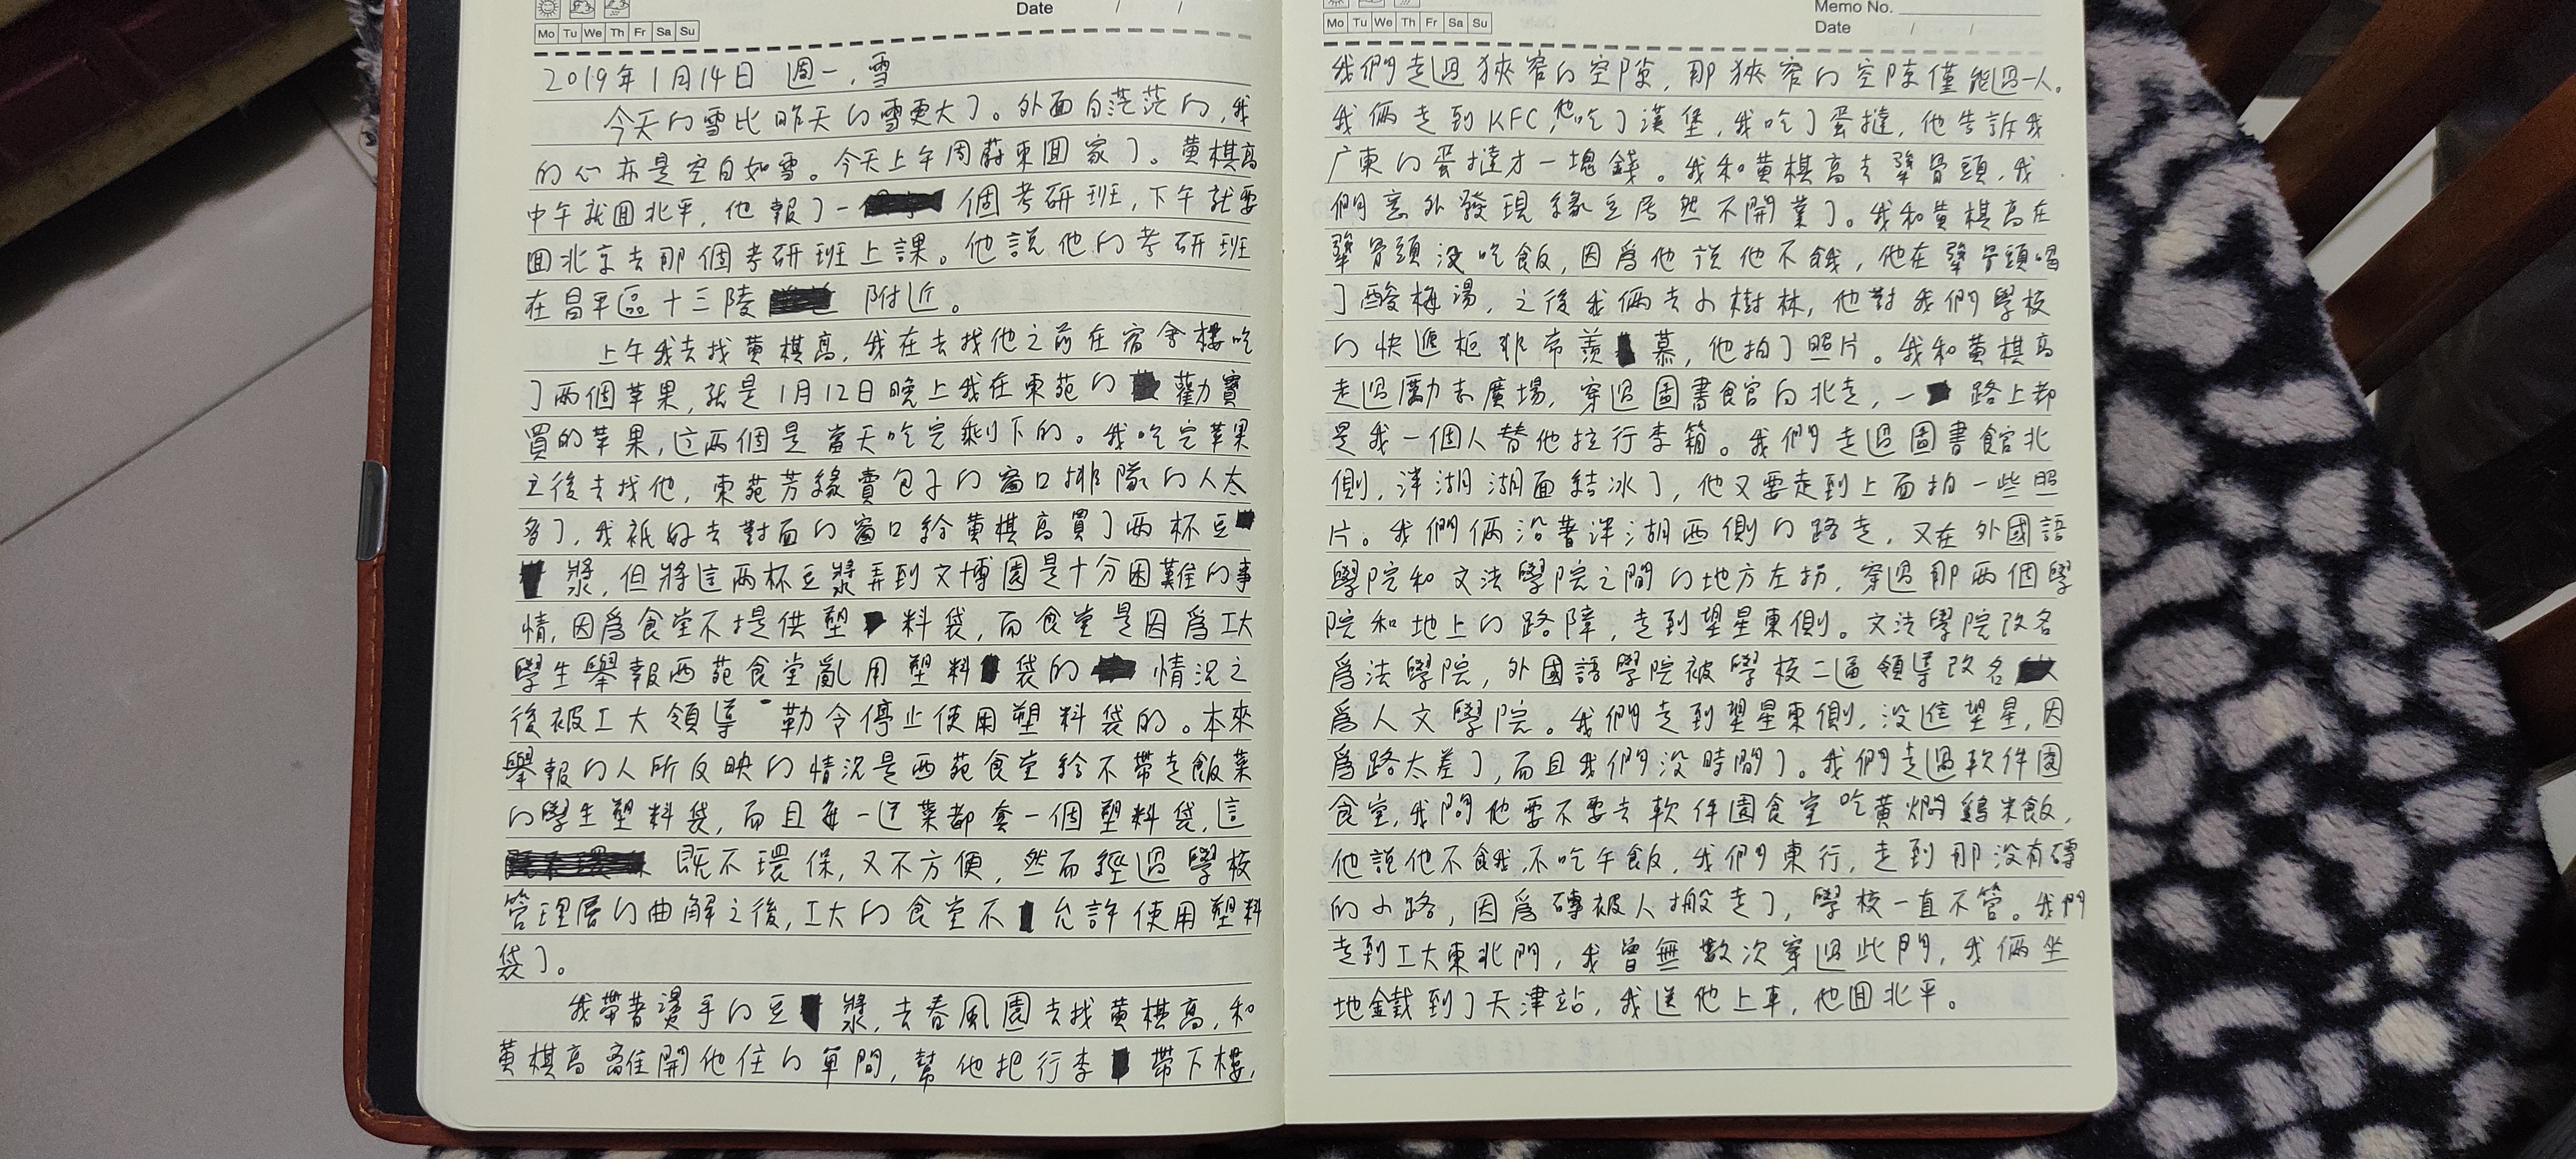 Date / /
Mo Tu We Th Fr Sa Su
2019年1月14日 週一,雪
今天的雪比昨天的雪更大了。外面白茫茫的,我
的心亦是空白如雪。今天上午周蔚東回家了。黄棋高
中午就回北平,他報了一個考研班,下午就要
回北京去那個考研班上課。他説他的考研班
在昌平區十三陵附近。
上午我去找黄棋高,我在去找他之前在宿舍樓吃
了兩個苹果,就是1月12日晚上我在東苑的勸寶
買的苹果,这兩個是當天吃完剩下的。我吃完苹果
之後去找他,東苑芳緣賣包子的窗口排隊的人太
多了,我祇好去對面的窗口給黄棋高買了兩杯豆
漿,但將這兩杯豆漿弄到文博園是十分困難的事
情,因爲食堂不提供塑料袋,而食堂是因爲工大
學生舉報西苑食堂亂用塑料袋的情況之
後被工大領導勒令停止使用塑料袋的。本來
舉報的人所反映的情況是西苑食堂給不帶走飯菜
的學生塑料袋,而且每一道菜都套一個塑料袋,這
既不環保,又不方便,然而經過學校
管理層的曲解之後,工大的食堂不允許使用塑料
袋了。
我帶着燙手的豆漿,去春風園去找黄棋高,和
黄棋高離開他住的單間,幫他把行李帶下樓,
Mo Tu We Th Fr Sa Su
Memo No.
Date / /
我們走過狹窄的空隙,那狹窄的空隙僅能過一人。
我倆走到KFC,他吃了漢堡,我吃了蛋撻,他告訴我
广東的蛋撻才一塊錢。我和黄棋高去犟骨頭,我
們意外發現緣豆居然不開業了。我和黄棋高在
犟骨頭没吃飯,因爲他说他不餓,他在犟骨頭喝
了酸梅湯,之後我倆去小樹林,他對我們學校
的快遞柜非常羨慕,他拍了照片。我和黄棋高
走過勵志廣場,穿過圖書館向北走,一路上都
是我一個人替他拉行李箱。我們走過圖書館北
側,泮湖湖面結冰了,他又要走到上面拍一些照
片。我們倆沿著泮湖西側的路走,又在外國語
學院和文法學院之間的地方左拐,穿過那兩個學
院和地上的路障,走到望星東側。文法學院改名
爲法學院,外國語學院被學校二逼領導改名
爲人文學院。我們走到望星東側,没進望星,因
爲路太差了,而且我們没時間了。我們走過軟件園
食堂,我問他要不要去軟件園食堂吃黄燜鷄米飯,
他說他不餓,不吃午飯,我們東行,走到那没有磚
的小路,因爲磚被人搬走了,學校一直不管。我們
走到工大東北門,我曾無數次穿過此門,我倆坐
地鐵到了天津站,我送他上車,他回北平。